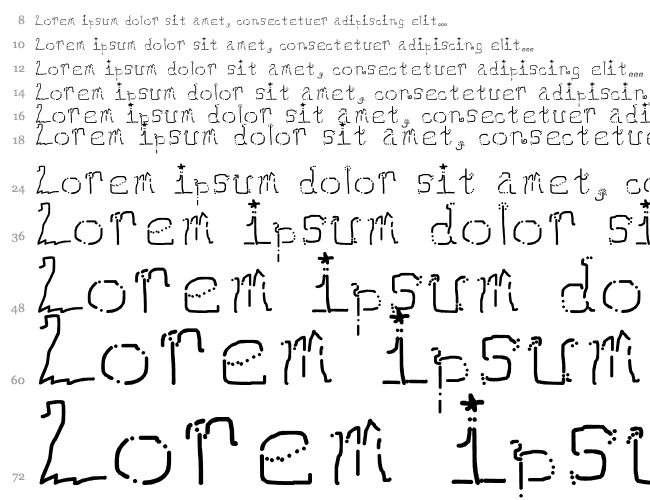 8 Lorem ipsum dolor sit amet, consectetuer adipiscing elit...
10 Lorem ipsum dolor sit amet, consectetuer adipiscing elit...
12 Lorem ipsum dolor sit amet, consectetuer adipiscing elit...
14 Lorem ipsum dolor sit amet, consectetuer adipiscin
16 Lorem ipsum dolor sit amet, consectetuer adi
18 Lorem ipsum dolor sit amet, consectetue
24 Lorem ipsum dolor sit amet, co
36 Lorem ipsum dolor si
48 Lorem ipsum do
60 Lorem ipsum
72 Lorem ipsu